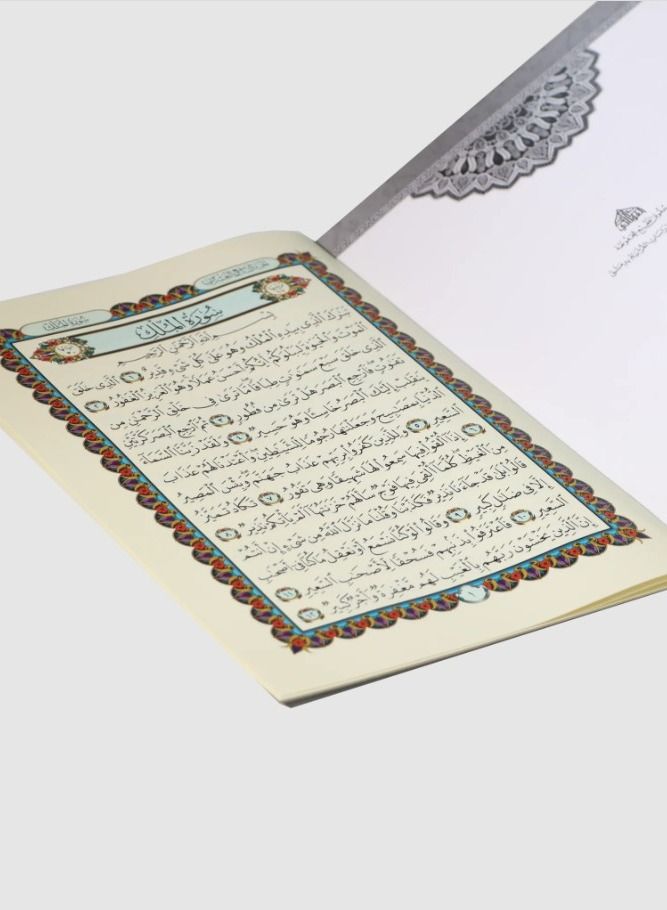 سُورَةُ المُلْكِ
سُورَةُ المُلْكِ
بِسْمِ اللَّهِ الرَّحْمَٰنِ الرَّحِيمِ
تَبَٰرَكَ الَّذِي بِيَدِهِ الْمُلْكُ وَهُوَ عَلَىٰ كُلِّ شَيْءٍ قَدِيرٌ ١ الَّذِي خَلَقَ
الْمَوْتَ وَالْحَيَوٰةَ لِيَبْلُوَكُمْ أَيُّكُمْ أَحْسَنُ عَمَلًا وَهُوَ الْعَزِيزُ الْغَفُورُ ٢
الَّذِي خَلَقَ سَبْعَ سَمَٰوَٰتٍ طِبَاقًا مَّا تَرَىٰ فِي خَلْقِ الرَّحْمَٰنِ مِن
تَفَٰوُتٍ فَارْجِعِ الْبَصَرَ هَلْ تَرَىٰ مِن فُطُورٍ ٣ ثُمَّ ارْجِعِ الْبَصَرَ كَرَّتَيْنِ
يَنقَلِبْ إِلَيْكَ الْبَصَرُ خَاسِئًا وَهُوَ حَسِيرٌ ٤ وَلَقَدْ زَيَّنَّا السَّمَاءَ
الدُّنْيَا بِمَصَٰبِيحَ وَجَعَلْنَٰهَا رُجُومًا لِّلشَّيَٰطِينِ وَأَعْتَدْنَا لَهُمْ عَذَابَ
السَّعِيرِ ٥ وَلِلَّذِينَ كَفَرُوا بِرَبِّهِمْ عَذَابُ جَهَنَّمَ وَبِئْسَ الْمَصِيرُ
٦ إِذَا أُلْقُوا فِيهَا سَمِعُوا لَهَا شَهِيقًا وَهِيَ تَفُورُ ٧ تَكَادُ تَمَيَّزُ
مِنَ الْغَيْظِ كُلَّمَا أُلْقِيَ فِيهَا فَوْجٌ سَأَلَهُمْ خَزَنَتُهَا أَلَمْ يَأْتِكُمْ نَذِيرٌ ٨
قَالُوا بَلَىٰ قَدْ جَاءَنَا نَذِيرٌ فَكَذَّبْنَا وَقُلْنَا مَا نَزَّلَ اللَّهُ مِن شَيْءٍ إِنْ أَنتُمْ
إِلَّا فِي ضَلَٰلٍ كَبِيرٍ ٩ وَقَالُوا لَوْ كُنَّا نَسْمَعُ أَوْ نَعْقِلُ مَا كُنَّا فِي أَصْحَٰبِ
السَّعِيرِ ١٠ فَاعْتَرَفُوا بِذَنبِهِمْ فَسُحْقًا لِّأَصْحَٰبِ السَّعِيرِ ١١
إِنَّ الَّذِينَ يَخْشَوْنَ رَبَّهُم بِالْغَيْبِ لَهُم مَّغْفِرَةٌ وَأَجْرٌ كَبِيرٌ ١٢
١